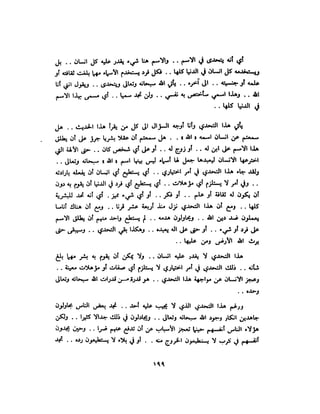 أي أنه يتحدى في الاسم .. والاسم هنا شيء يقدر عليه كل انسان .. بل
ويستخدمه كل انسان في الدنيا كلها .. فكل فرد يستخدم الأسماء مهما بلغت ثقافته أو
علمه أو جنسيته .. الى آخره .. يأتي الله سبحانه وتعالى ويتحدى .. ويقول اني أنا
الله .. وهذا اسمي سأختص به نفسي .. ولن تجد سميا .. أي مسمى بهذا الاسم
في الدنيا كلها ..
يأتي هذا التحدي وأنا أوجه السؤال الى كل من يقرأ هذا الحديث .. هل
سمعتم عن انسان اسمه « الله » .. هل سمعتم أن عقلا بشريا جرؤ على أن يطلق
هذا الاسم على ابن له .. أو زوج له .. أو على أي شخص كان .. حتى الآلهة التي
اخترعها الانسان ليعبدها جعل لها أسماء ليس بينها اسم « الله » سبحانه وتعالى ..
ولقد جاء هذا التحدي في أمر اختياري .. أي يستطيع أي انسان أن يفعله بارادته
.. وفي أمر لا يستلزم أي مؤهلات .. أي يستطيع أي فرد في الدنيا أن يقوم به دون
أن يكون له ثقافة أو علم .. أو فكر .. أو أي شيء مميز . أي أنه تحد للبشرية
كلها .. ومع أن هذا التحدي نزل منذ أربعة عشر قرنا .. ومع أن هناك أناسا
يعملون ضد دين الله .. ويحاولون هدمه .. لم يستطع واحد منهم أن يطلق الاسم
على فرد أو شيء .. أو حتى على اله يعبده .. وهكذا بقي التحدي .. وسيبقى حتى
يرث الله الأرض ومن عليها ..
هذا التحدي لا يقدر عليه انسان .. ولا يمكن أن يقوم به بشر مهما بلغ
شأنه .. ذلك التحدي في أمر اختياري لا يستلزم أي صفات أو مؤهلات معينة ..
وعجز الانسان عن مواجهة هذا التحدي .. هو قدرة من قدرات الله سبحانه وتعالى
وحده ..
ورغم هذا التحدي الذي لا يجيب عليه أحد .. تجد بعض الناس يحاولون
جاهدين انكار وجود الله سبحانه وتعالى .. ويجادلون في ذلك جدالا كثيرا .. ولكن
هؤلاء الناس أنفسهم حينما تعجز الأسباب عن أن تدفع عنهم ضرا .. وحين يجدون
أنفسهم في كرب لا يستطيعون الخروج منه .. أو في بلاء لا يستطيعون رده .. تجد
١٩٩